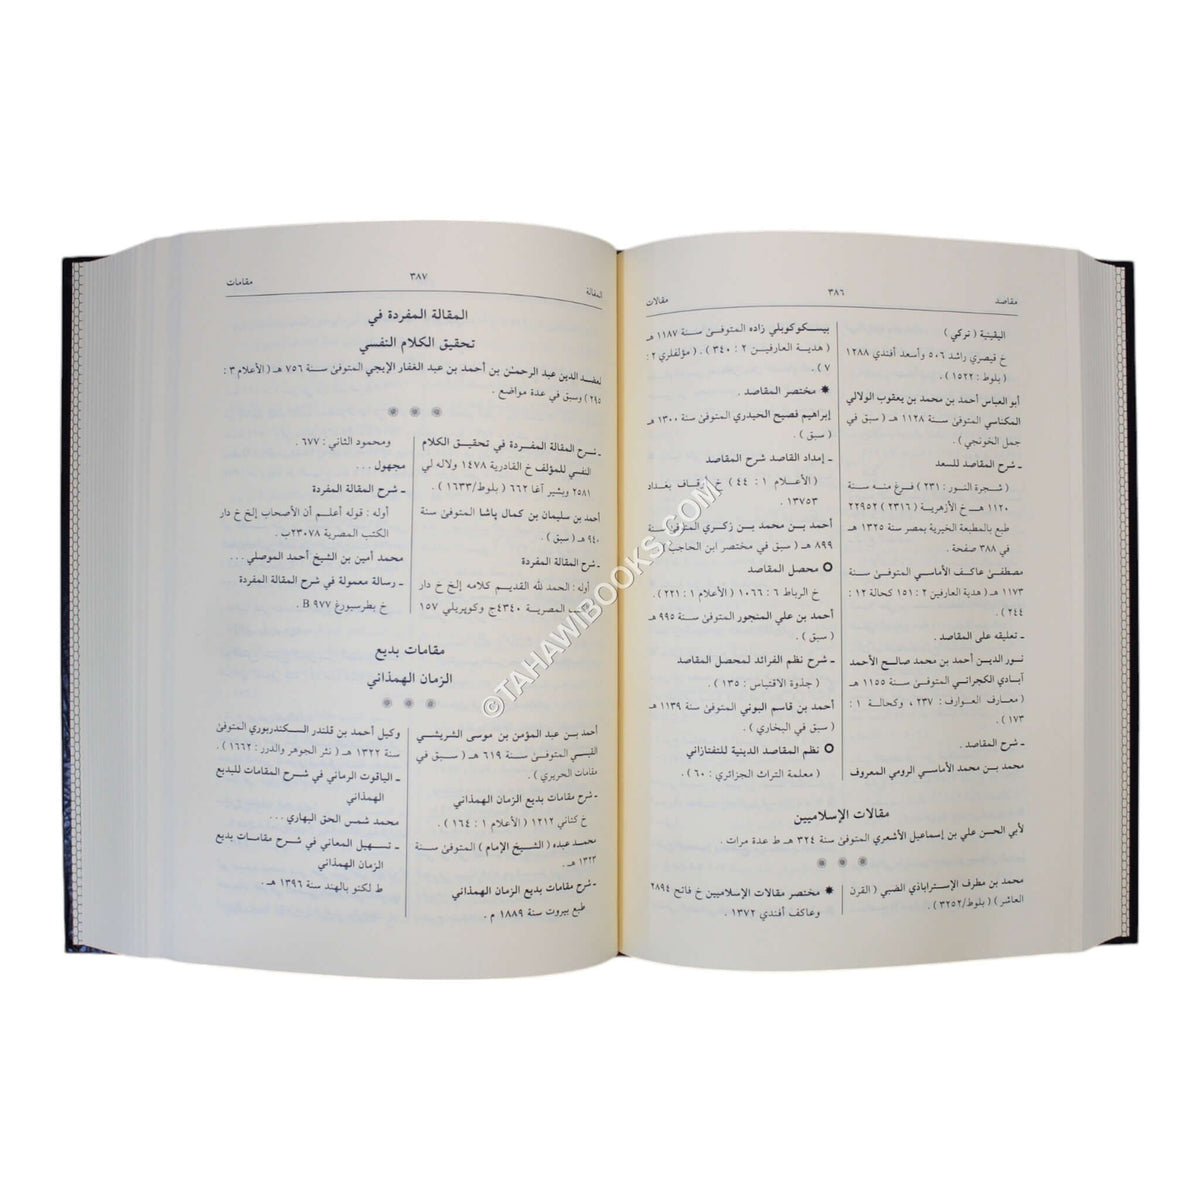 مقاصد
٣٨٦
مقالات
اليقينية ( تركي )
خ قيصري راشد ٥٠٦ وأسعد أفندي ١٢٨٨
( بلوط : ١٥٢٢ ) .
أبو العباس أحمد بن محمد بن يعقوب الولالي
المكناسي المتوفىٰ سنة ١١٢٨ هـ ( سبق في
جمل الخونجي ) .
ـ شرح المقاصد للسعد
( شجرة النور : ٢٣١ ) فرغ منه سنة
١١٢٠ هـ خ الأزهرية ( ٢٣١٦ ) ٢٢٩٥٢
طبع بالمطبعة الخيرية بمصر سنة ١٣٢٥ هـ
في ٣٨٨ صفحة .
مصطفىٰ عاكف الأماسي المتوفىٰ سنة
١١٧٣ هـ ( هدية العارفين ٢ : ١٥١ كحالة ١٢ :
٢٤٤ ) .
ـ تعليقه على المقاصد .
نور الدين أحمد بن محمد صالح الأحمد
آبادي الكجراتي المتوفىٰ سنة ١١٥٥ هـ
( معارف العوارف : ٢٣٧ ، وكحالة ١ :
١٧٣ ) .
ـ شرح المقاصد .
محمد بن محمد الأماسي الرومي المعروف
بيسكوكوبلي زاده المتوفىٰ سنة ١١٨٧ هـ
( هدية العارفين ٢ : ٣٤٠ ) . ( مؤلفلري ٢ :
٧ ) .
✷ مختصر المقاصد .
إبراهيم فصيح الحيدري المتوفىٰ سنة ١٣٠٠ هـ
( سبق ) .
ـ إمداد القاصد شرح المقاصد
( الأعلام ١ : ٤٤ ) خ أوقاف بغداد
١٣٧٥٣
أحمد بن محمد بن زكري المتوفىٰ سنة
٨٩٩ هـ ( سبق في مختصر ابن الحاجب )
○ محصل المقاصد
خ الرباط ٦ : ١٠٦٦ ( الأعلام ١ : ٢٢١ ) .
أحمد بن علي المنجور المتوفىٰ سنة ٩٩٥ هـ
( سبق ) .
ـ شرح نظم الفرائد لمحصل المقاصد
( جذوة الاقتباس : ١٣٥ ) .
أحمد بن قاسم البوني المتوفىٰ سنة ١١٣٩ هـ
( سبق في البخاري ) .
○ نظم المقاصد الدينية للتفتازاني
( معلمة التراث الجزائري : ٦٠ ) .
مقالات الإسلاميين
لأبي الحسن علي بن إسماعيل الأشعري المتوفىٰ سنة ٣٢٤ هـ ط عدة مرات .
محمد بن مطرف الإستراباذي الضبي ( القرن
العاشر ) ( بلوط/٣٢٥٢ ) .
✷ مختصر مقالات الإسلاميين خ فاتح ٢٨٩٤
وعاكف أفندي ١٣٧٢ .
المقالة
٣٨٧
مقامات
المقالة المفردة في
تحقيق الكلام النفسي
لعضد الدين عبد الرحمن بن أحمد بن عبد الغفار الإيجي المتوفىٰ سنة ٧٥٦ هـ ( الأعلام ٣ :
٢٩٥ ) وسبق في عدة مواضع .
ـ شرح المقالة المفردة في تحقيق الكلام
النفسي للمؤلف خ القادرية ١٤٧٨ ولاله لي
٢٥٨١ وبشير آغا ٦٦٢ ( بلوط/١٦٣٣ ) .
أحمد بن سليمان بن كمال پاشا المتوفىٰ سنة
٩٤٠ هـ ( سبق ) .
ـ شرح المقالة المفردة
أوله : الحمد لله القديم كلامه إلخ خ دار
الكتب المصرية ٤٣٤٠ج وكوپريلي ١٥٧
ومحمود الثاني : ٦٧٧ .
مجهول ...
ـ شرح المقالة المفردة
أوله : قوله أعلم أن الأصحاب إلخ خ دار
الكتب المصرية ٢٣٠٧٨ب .
محمد أمين بن الشيخ أحمد الموصلي ...
ـ رسالة معمولة في شرح المقالة المفردة
خ بطرسبورغ B ٩٧٧ .
مقامات بديع
الزمان الهمذاني
أحمد بن عبد المؤمن بن موسى الشريشي
القيسي المتوفىٰ سنة ٦١٩ هـ ( سبق في
مقامات الحريري ) .
ـ شرح مقامات بديع الزمان الهمذاني
خ كتاني ١٢١٢ ( الأعلام ١ : ١٦٤ ) .
محمد عبده ( الشيخ الإمام ) المتوفىٰ سنة
١٣٢٣ هـ .
ـ شرح مقامات بديع الزمان الهمذاني
طبع بيروت سنة ١٨٨٩ م .
وكيل أحمد بن قلندر السكندربوري المتوفىٰ
سنة ١٣٢٢ هـ ( نثر الجوهر والدرر : ١٦٦٢ ) .
ـ الياقوت الرماني في شرح المقامات للبديع
الهمذاني
محمد شمس الحق البهاري ...
ـ تسهيل المعاني في شرح مقامات بديع
الزمان الهمذاني
ط لكنو بالهند سنة ١٣٩٦ هـ .
©TAHAWIBOOKS.COM